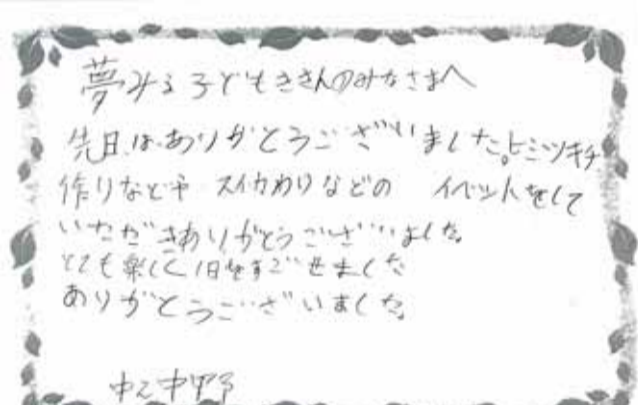 夢みる子どもききんのみなさまへ
先日はありがとうございました。ヒミツキチ
作りなどや スイカわりなどの イベントをして
いただきありがとうございました。
とても楽しく1日をすごせました
ありがとうございました。
中2 中野